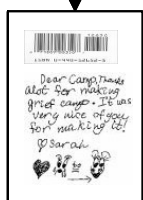 Dear Camp, Thanks
alot for making
grief camp. It was
very nice of you
for making it!
♡ Sarah